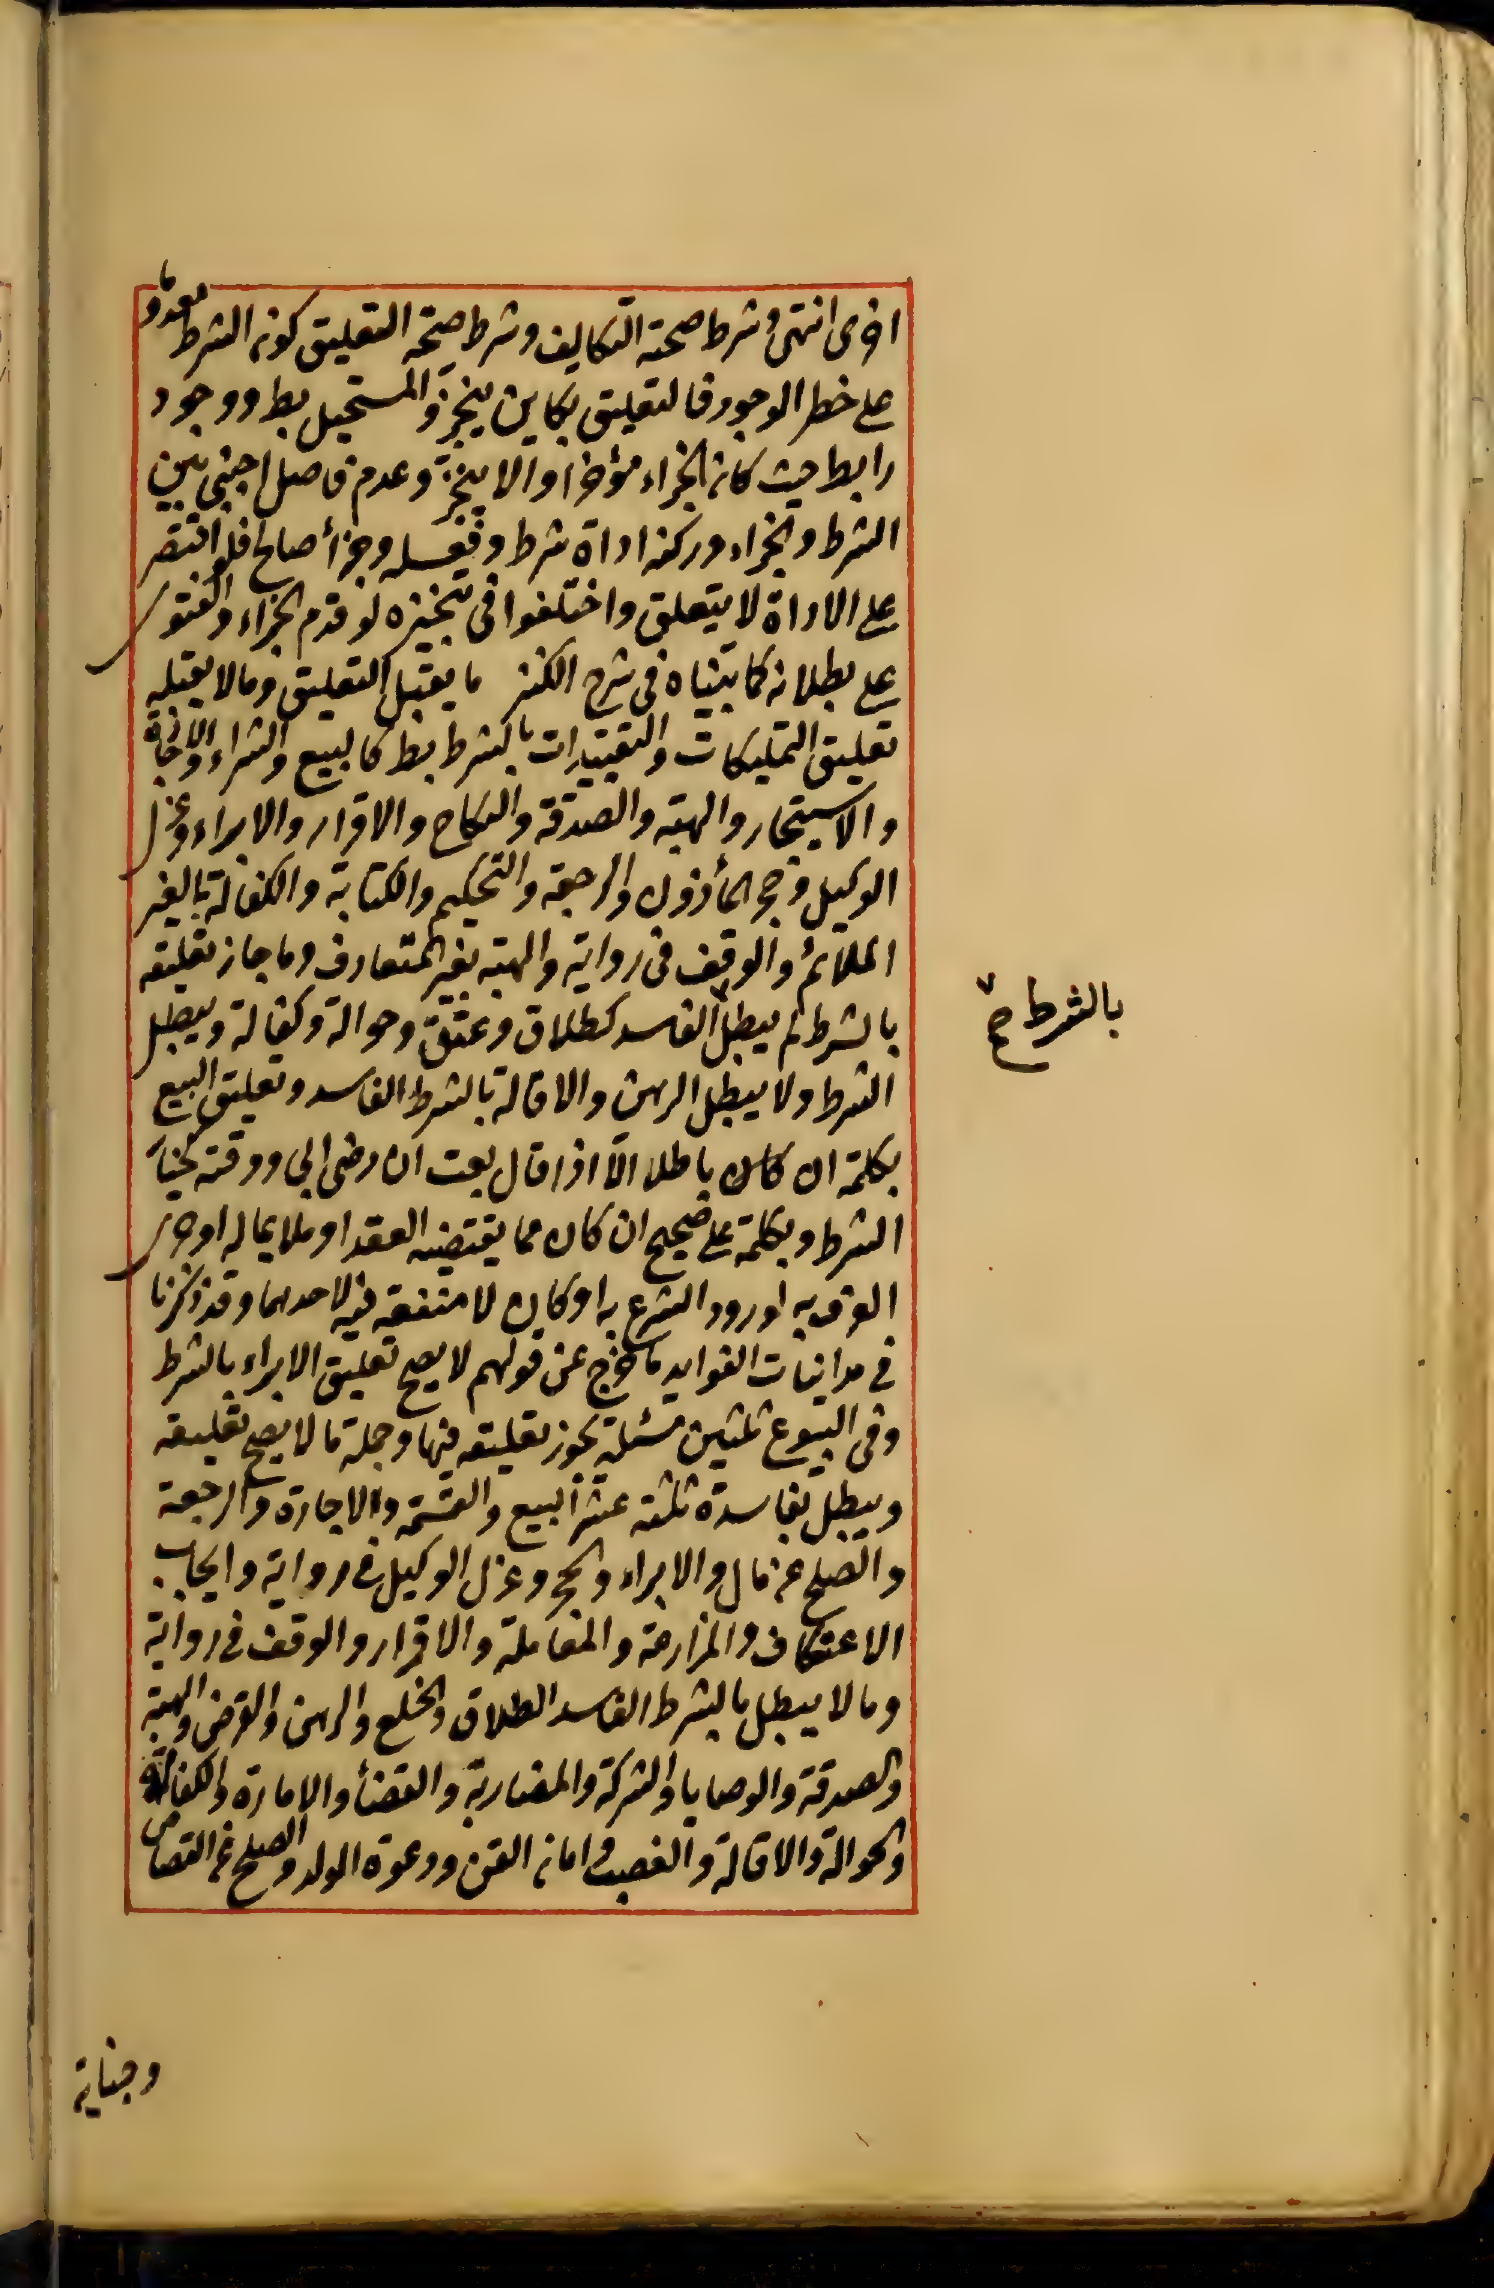 اخرى انتهى وشرط صحة التكاليف وشرط صحة التعليق كون الشرط معدوما
على خطر الوجود فالتعليق بكاين ينجز والمستحيل بط ووجود
رابط حيث كان الجزاء مؤخرا والا ينجز وعدم فاصل اجنبى بين
الشرط والجزاء وركنه اداة شرط وفعله وجزأ صالح فلو اقتصر
على الاداة لا يتعلق واختلفوا فى تنجيزه لو قدم الجزاء والفتوى
على بطلانه كما بيناه فى شرح الكنز ما يقبل التعليق وما لا يقبله
تعليق التمليكات والتقييدات بالشرط بط كالبيع والشراء والاجارة
والاستيجار والهبة والصدقة والنكاح والاقرار والابراء وعزل
الوكيل وحجر المأذون والرجعة والتحكيم والكتابة والكفالة بالغير
الملائم والوقف فى رواية والهبة بغير المتعارف وما جاز تعليقه
بالشرط لم يبطل الفاسد كطلاق وعتق وحوالة وكفالة ويبطل
بالشرط صح
الشرط ولا يبطل الرهن والاقالة بالشرط الفاسد وتعليق البيع
بكلمة ان كان باطلا الا اذا قال بعت ان رضى ابى ووقته كخيار
الشرط وبكلمة على صحيح ان كان مما يقتضيه العقد او ملايما له او جرى
العرف به او ورود الشرع به او كان لا منفعة فيه لاحدهما وقد ذكرنا
فى مداينات الفوايد ما خرج عن قولهم لا يصح تعليق الابراء بالشرط
وفى البيوع ثلثين مسئلة يجوز تعليقه فيها وجملة ما لا يصح تعليقه
ويبطل بفاسدة ثلثة عشر البيع والقسمة والاجارة والرجعة
والصلح عن مال والابراء والحجر وعزل الوكيل فى رواية وايجاب
الاعتكاف والمزارعة والمعاملة والاقرار والوقف فى رواية
وما لا يبطل بالشرط الفاسد الطلاق والخلع والرهن والقرض والهبة
والصدقة والوصايا والشركة والمضاربة والقضأ والامارة والكفالة
والحوالة والاقالة والغصب وامان القن ودعوة الولد والصلح عن القصاص
وجناية